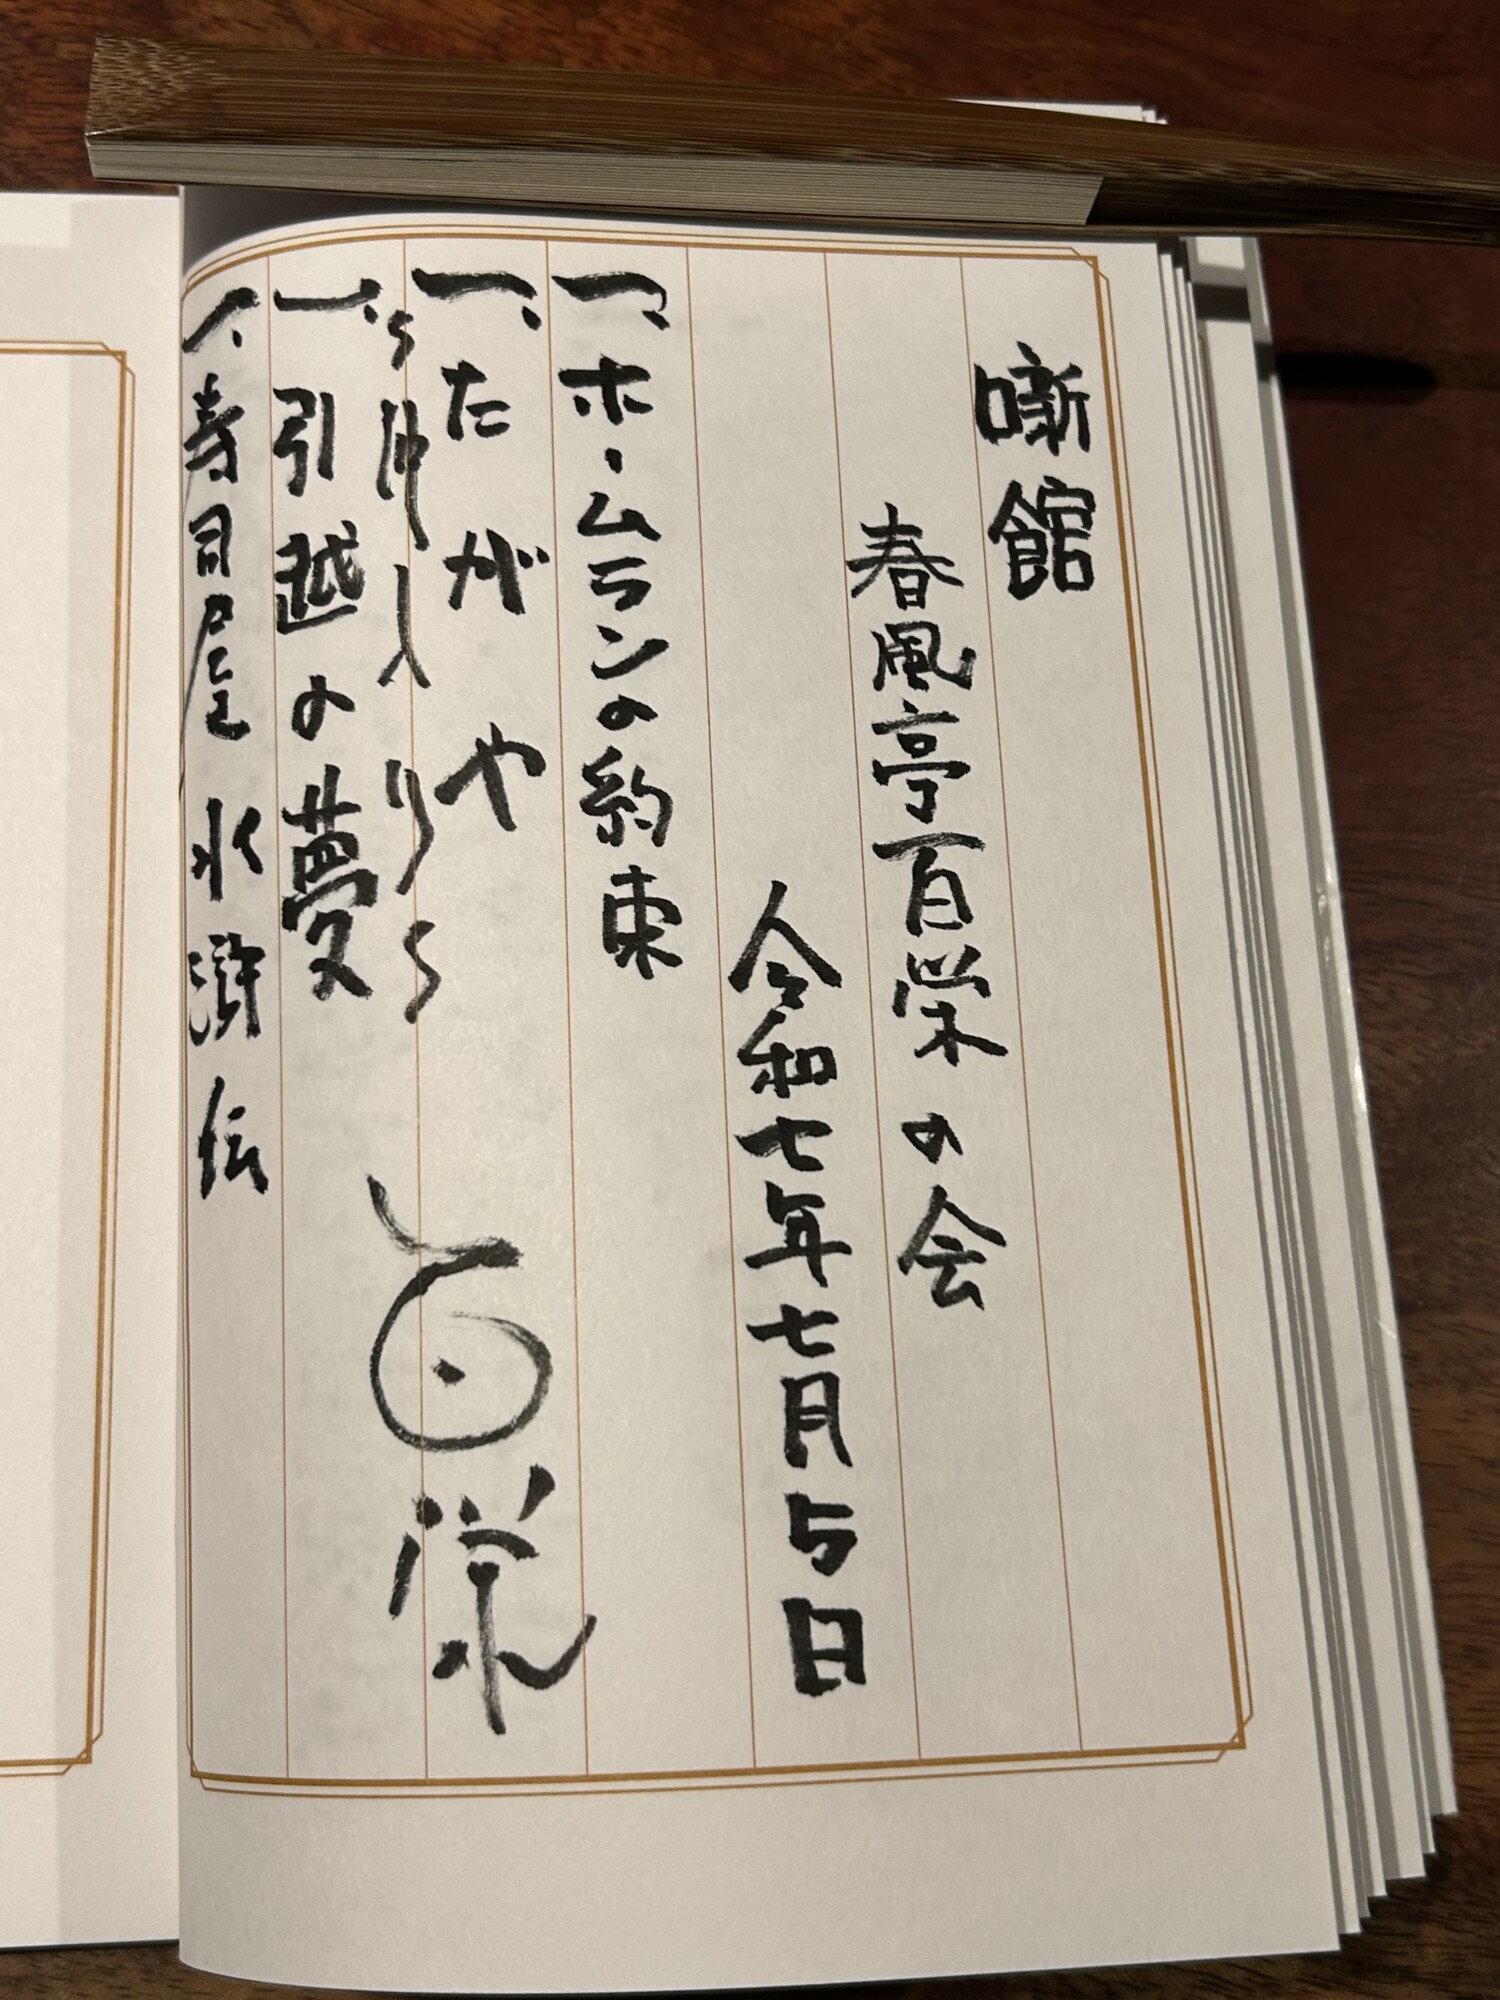 噺館
春風亭百栄の会
令和七年七月5日
一、ホームランの約束
一、たがや
〜仲入り〜
百栄
一、引越の夢
一、寿司屋水滸伝